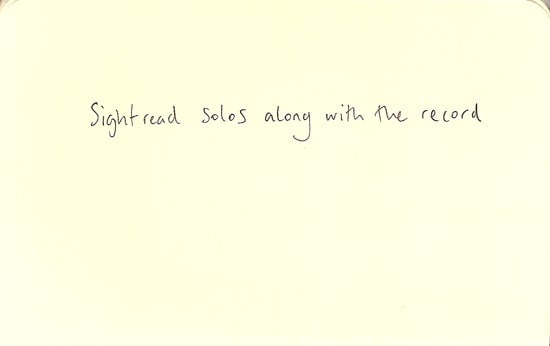 Sightread solos along with the record